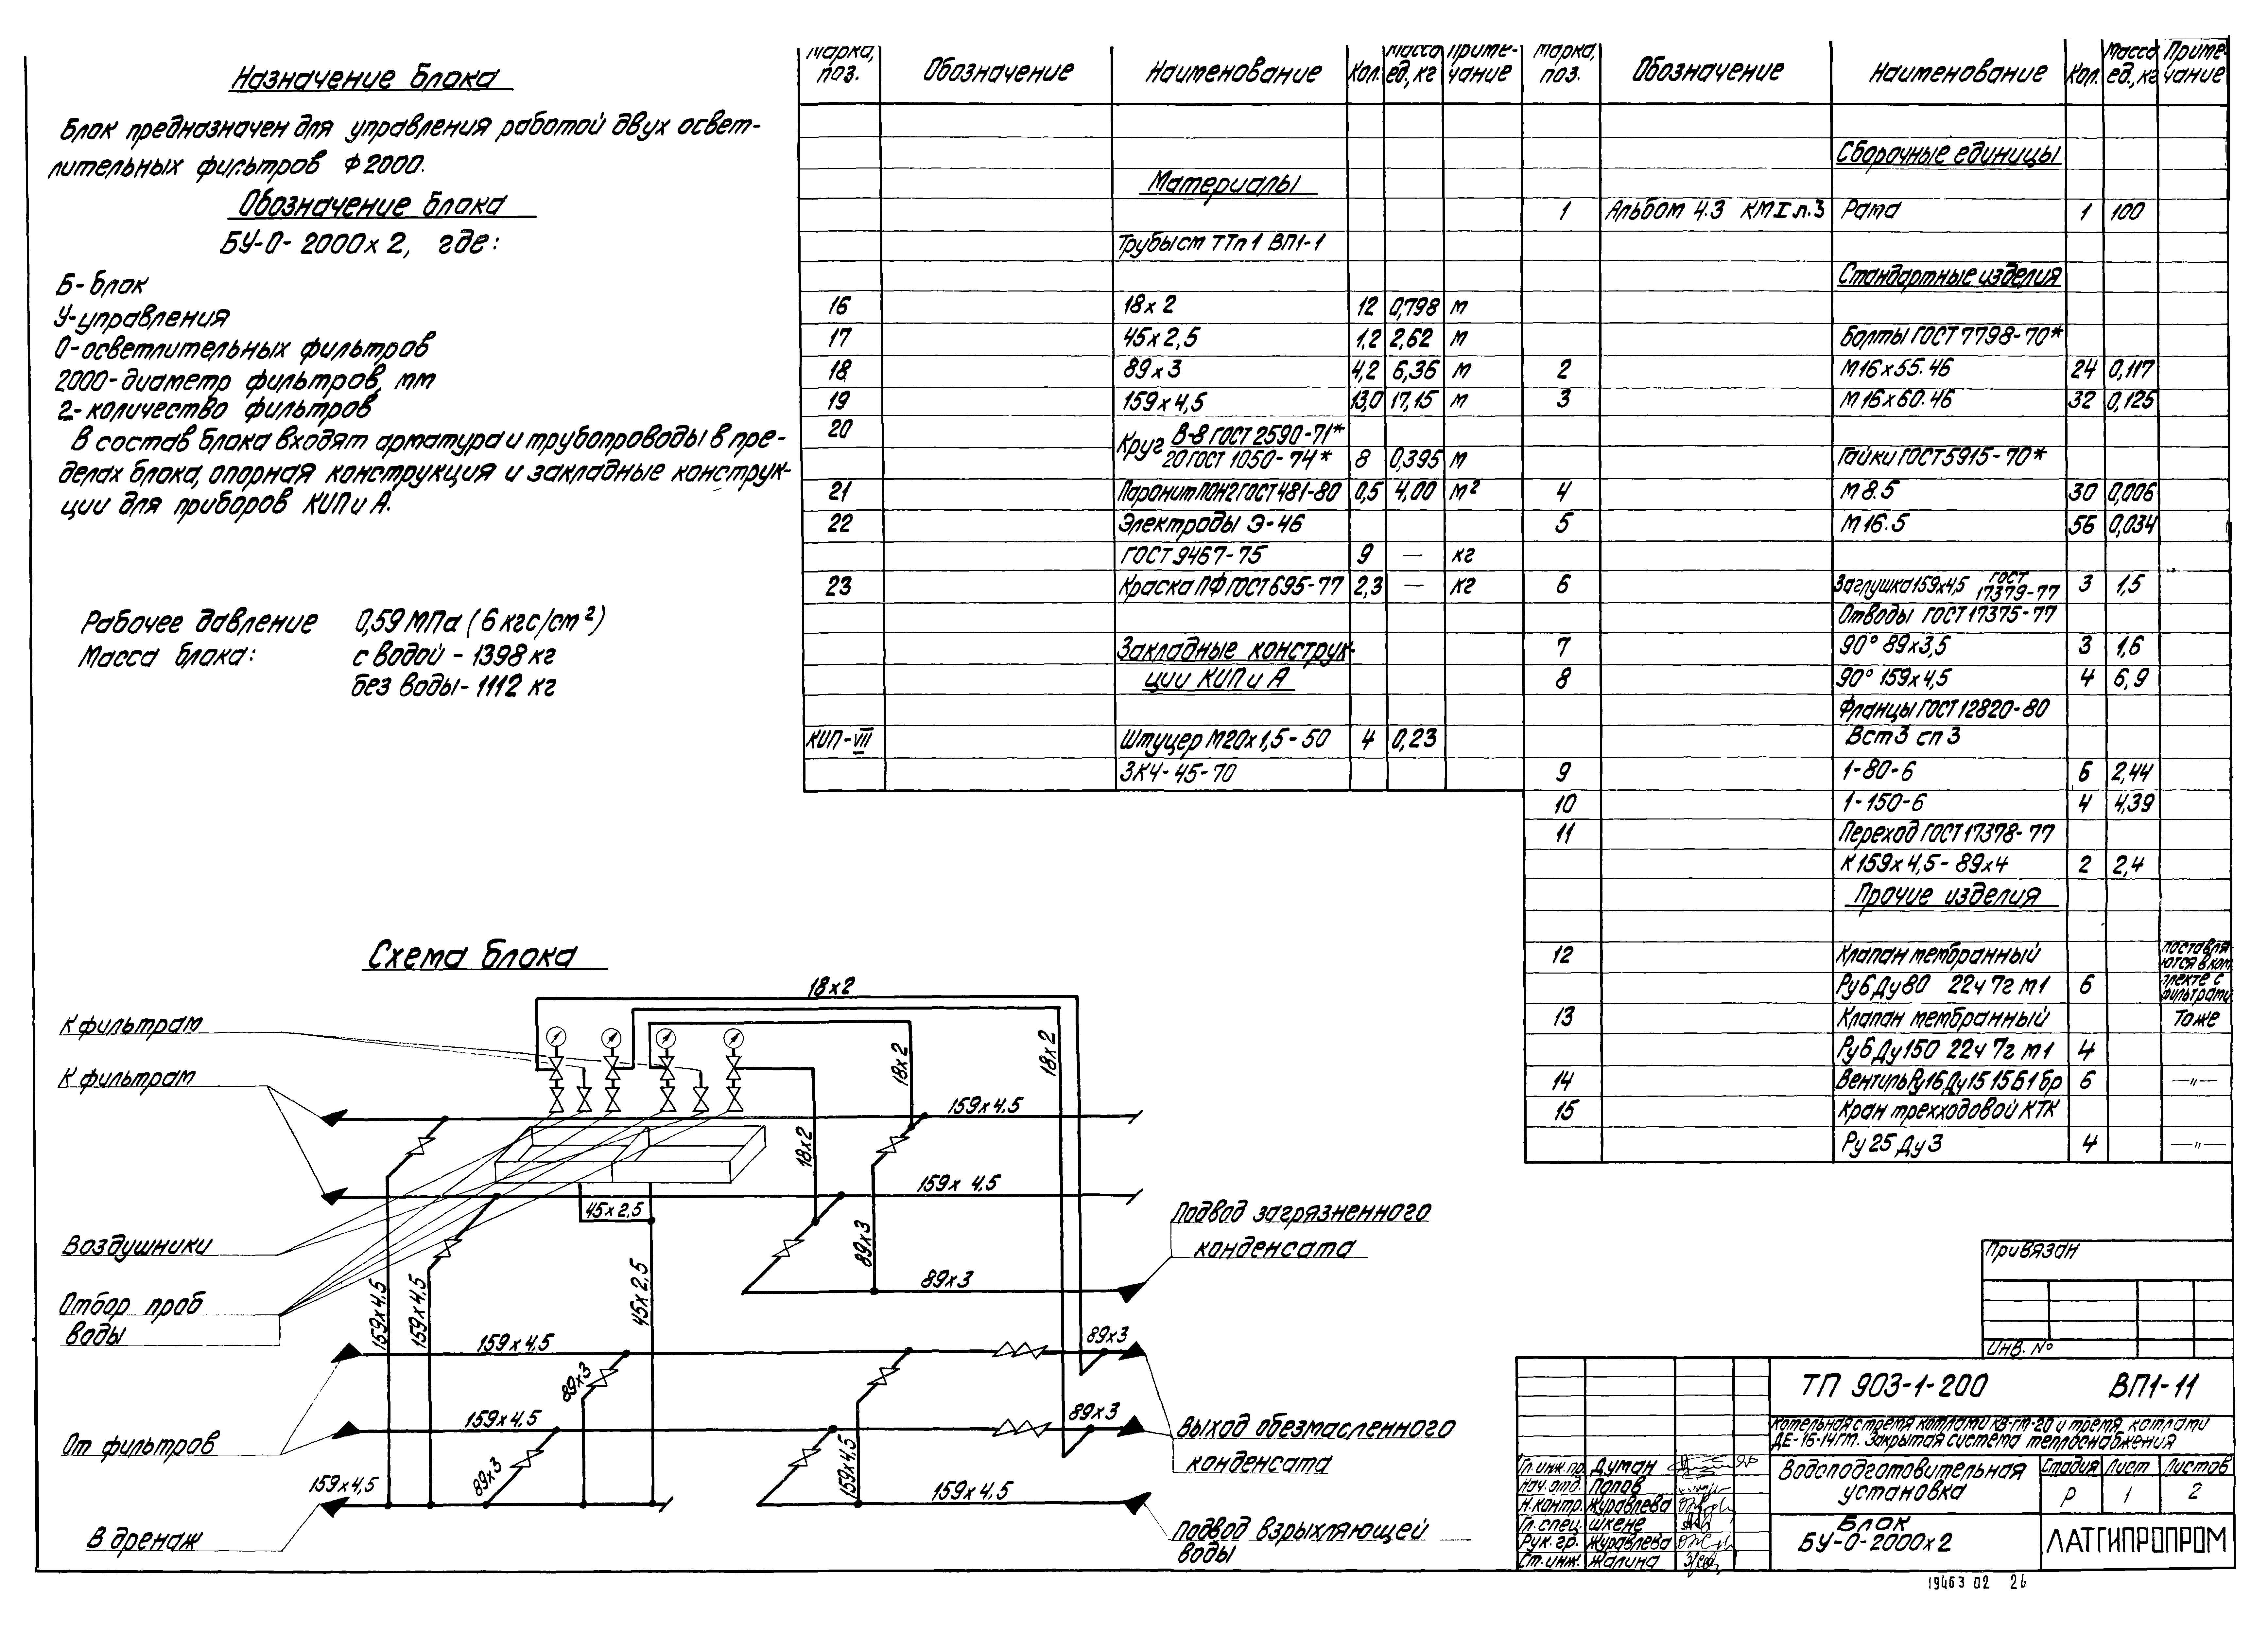 Назначение блока
Блок предназначен для управления работой двух освет-
лительных фильтров Ф2000.
Обозначение блока
БУ-О-2000х2, где:
Б-блок
У-управления
О-осветлительных фильтров
2000-диаметр фильтров, мм
2-количество фильтров
В состав блока входят арматура и трубопроводы в пре-
делах блока, опорная конструкция и закладные конструк-
ции для приборов КИПиА.
Рабочее давление 0,59 МПа (6 кгс/см²)
Масса блока: с водой - 1398 кг
без воды - 1112 кг
Марка, поз. Обозначение Наименование Кол. Масса ед., кг Приме-чание
Материалы
Трубы ст ТТп1 ВП1-1
16 18х2 12 0,798 м
17 45х2,5 1,2 2,62 м
18 89х3 4,2 6,36 м
19 159х4,5 13,0 17,15 м
20 Круг В-8 ГОСТ 2590-71*
20 ГОСТ 1050-74* 8 0,395 м
21 Паронит ПОН2 ГОСТ 481-80 0,5 4,00 м²
22 Электроды Э-46
ГОСТ 9467-75 9 — кг
23 Краска ПФ ГОСТ 695-77 2,3 — кг
Закладные конструк-
ции КИПиА
КИП-VII Штуцер М20х1,5-50 4 0,23
ЗК4-45-70
Марка, поз. Обозначение Наименование Кол. Масса ед., кг Приме-чание
Сборочные единицы
1 Альбом 4.3 КМI л.3 Рама 1 100
Стандартные изделия
Болты ГОСТ 7798-70*
2 М16х55.46 24 0,117
3 М16х60.46 32 0,125
Гайки ГОСТ 5915-70*
4 М8.5 30 0,006
5 М16.5 56 0,034
6 Заглушка 159х4,5 ГОСТ 17379-77 3 1,5
Отводы ГОСТ 17375-77
7 90° 89х3,5 3 1,6
8 90° 159х4,5 4 6,9
Фланцы ГОСТ 12820-80
Вст3 сп3
9 1-80-6 6 2,44
10 1-150-6 4 4,39
11 Переход ГОСТ 17378-77
К159х4,5-89х4 2 2,4
Прочие изделия
12 Клапан мембранный поставля-ются в ком-
Ру6 Ду80 22ч 7г м1 6 плекте с фильтрами
13 Клапан мембранный Тоже
Ру6 Ду150 22ч 7г м1 4
14 Вентиль Ру16 Ду15 15Б1бр 6 —"—
15 Кран трехходовой КТК
Ру25 Ду3 4 —"—
Схема блока
18х2
К фильтрам
К фильтрам
18х2
18х2
18х2
159х4,5
159х4,5
45х2,5
Воздушники
Отбор проб
воды
159х4,5
159х4,5
45х2,5
89х3
89х3
Подвод загрязненного
конденсата
159х4,5
89х3
89х3
От фильтров
159х4,5
89х3
Выход обезмасленного
конденсата
159х4,5
89х3
159х4,5
159х4,5
В дренаж
Подвод взрыхляющей
воды
Привязан
Инв. №
ТП 903-1-200 ВП1-11
Котельная с тремя котлами КВ-ГМ-20 и тремя котлами
ДЕ-16-14ГМ. Закрытая система теплоснабжения
Гл.инж.пр. Думан
Нач.отд. Попов
Н.контр. Журавлева
Гл.спец. Шкене
Рук.гр. Журавлева
Ст.инж. Жалина
Водоподготовительная
установка
Стадия Лист Листов
Р 1 2
Блок
БУ-О-2000х2
ЛАТГИПРОПРОМ
19463 02